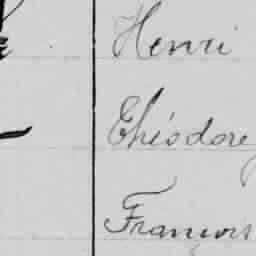 Henri
Théodore
François